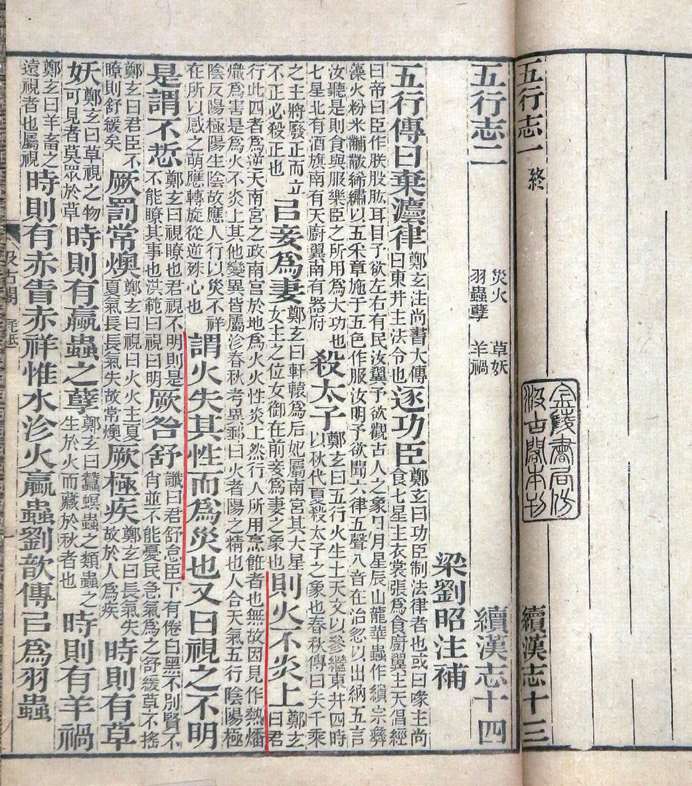 五行志一 終
續漢志十三
金陵書局仿
汲古閣本刊
五行志二 災火 草妖 羽蟲孽 羊禍 續漢志十四
梁劉昭注補
五行傳曰棄灋律鄭玄注尚書大傳曰東井主法令也逐功臣鄭玄曰功臣制法律者也或曰喙主尚食七星主衣裳張爲食廚翼主天倡經
曰帝曰臣作朕股肱耳目予欲左右有民汝翼予欲觀古人之象日月星辰山龍華蟲作繢宗彝藻火粉米黼黻絺繡以五采章施于五色作服汝明予欲聞六律五聲八音在治忽以出納五言
汝聽是則食與服樂臣之所用爲大功也七星北有酒旗南有天廚翼南有器府殺太子鄭玄曰五行火生土天文以參繼東井四時以秋代夏殺太子之象也春秋傳曰夫千乘
之主將廢正而立不正必殺正也㠯妾爲妻鄭玄曰軒轅爲后妃屬南宮其大星女主之位女御在前妾爲妻之象也則火不炎上鄭玄曰君
行此四者爲逆天南宮之政南宮於地爲火火性炎上然行人所用烹飪者也無故因見作熱燔熾爲害是爲火不炎上其他變異皆屬沴春秋考異郵曰火者陽之精也人合天氣五行陰陽極
陰反陽極陽生陰故應人行以災不祥在所以感之萌應轉旋從逆殊心也謂火失其性而爲災也又曰視之不明
是謂不悊鄭玄曰視瞭也君視不明則是不能瞭其事也洪範曰視曰明厥咎舒讖曰君舒怠臣下有倦白黑不別賢不肖並不能憂民急氣爲之舒緩草不搖
鄭玄曰君臣不瞭則舒緩矣厥罰常燠鄭玄曰視曰火火主夏夏氣長長氣失故常燠厥極疾鄭玄曰長氣失故於人爲疾時則有草
妖鄭玄曰草視之物可見者莫眾於草時則有蠃蟲之孽鄭玄曰蠶螟蟲之類蟲之生於火而藏於秋者也時則有羊禍
鄭玄曰羊畜之遠視者也屬視時則有赤眚赤祥惟水沴火蠃蟲劉歆傳㠯爲羽蟲